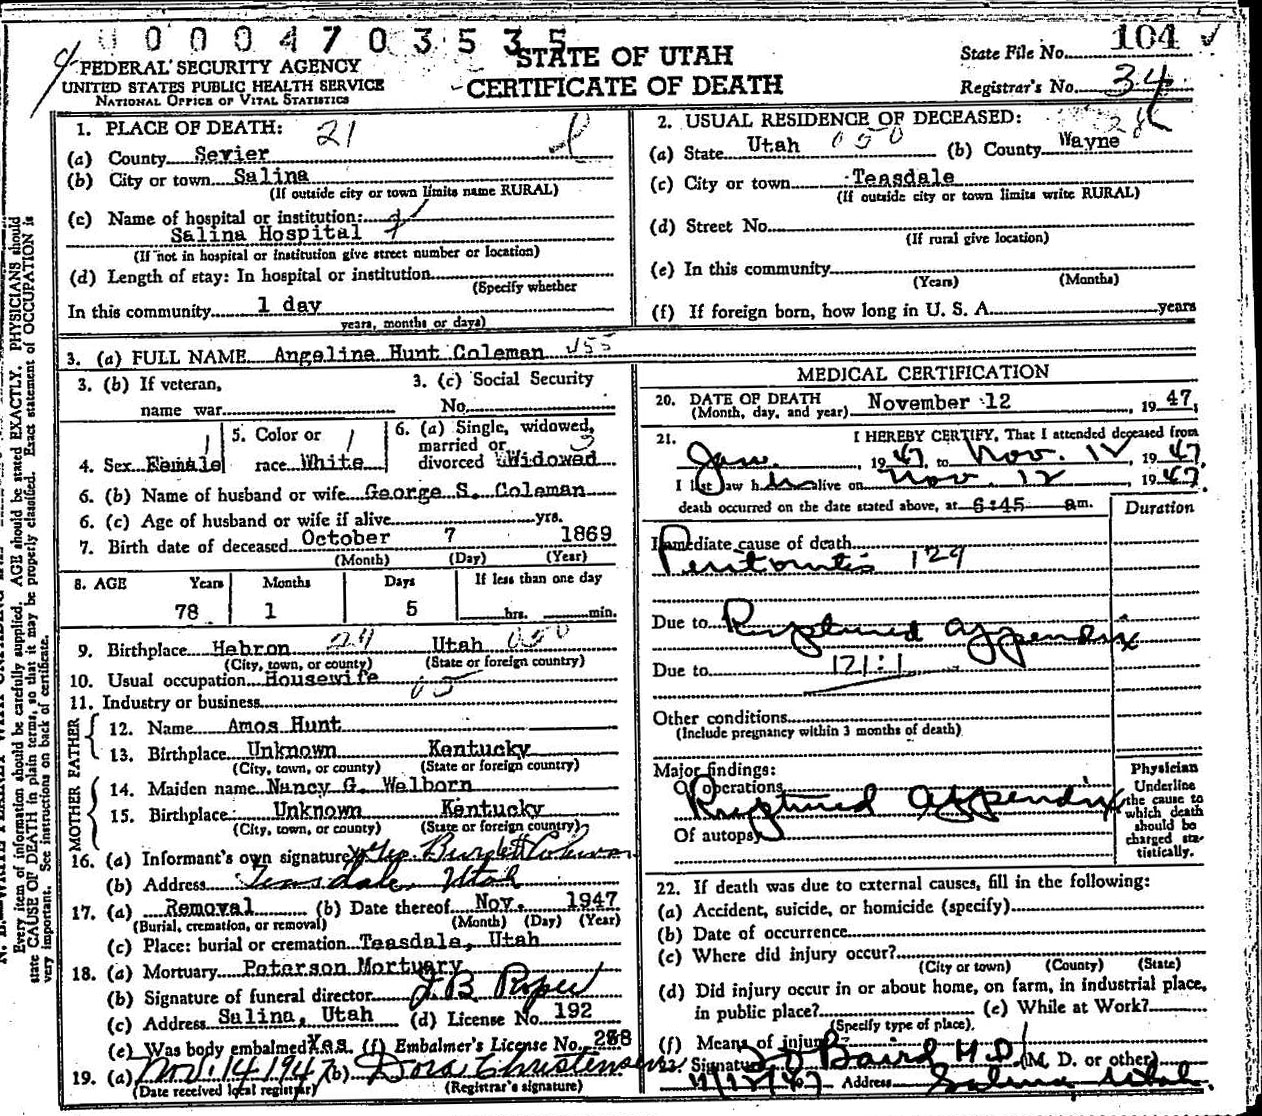 0 0 0 4 7 0 3 5 3 5
FEDERAL SECURITY AGENCY
UNITED STATES PUBLIC HEALTH SERVICE
NATIONAL OFFICE OF VITAL STATISTICS
STATE OF UTAH
CERTIFICATE OF DEATH
State File No. 104
Registrar's No. 34
1. PLACE OF DEATH: 21
(a) County Sevier
(b) City or town Salina
(If outside city or town limits name RURAL)
(c) Name of hospital or institution:
Salina Hospital
(If not in hospital or institution give street number or location)
(d) Length of stay: In hospital or institution
(Specify whether
In this community 1 day
years, months or days)
2. USUAL RESIDENCE OF DECEASED:
(a) State Utah 050 (b) County Wayne
(c) City or town Teasdale
(If outside city or town limits write RURAL)
(d) Street No.
(If rural give location)
(e) In this community
(Years) (Months)
(f) If foreign born, how long in U. S. A. years
3. (a) FULL NAME Angeline Hunt Coleman 455
3. (b) If veteran,
name war
3. (c) Social Security
No.
4. Sex Female
5. Color or
race White
6. (a) Single, widowed,
married or
divorced Widowed
6. (b) Name of husband or wife George S. Coleman
6. (c) Age of husband or wife if alive yrs.
7. Birth date of deceased October 7 1869
(Month) (Day) (Year)
8. AGE Years Months Days If less than one day
78 1 5 hrs. min.
9. Birthplace Hebron Utah 050
(City, town, or county) (State or foreign country)
10. Usual occupation Housewife
11. Industry or business
FATHER
12. Name Amos Hunt
13. Birthplace Unknown Kentucky
(City, town, or county) (State or foreign country)
MOTHER
14. Maiden name Nancy G. Welborn
15. Birthplace Unknown Kentucky
(City, town, or county) (State or foreign country)
16. (a) Informant's own signature
(b) Address Teasdale, Utah
17. (a) Removal (b) Date thereof Nov. 1947
(Burial, cremation, or removal) (Month) (Day) (Year)
(c) Place: burial or cremation Teasdale, Utah
18. (a) Mortuary Peterson Mortuary
(b) Signature of funeral director J B Roper
(c) Address Salina, Utah (d) License No. 192
(e) Was body embalmed Yes (f) Embalmer's License No.
19. (a) Nov. 14 1947 (b) Dora Christensen
(Date received local registrar) (Registrar's signature)
MEDICAL CERTIFICATION
20. DATE OF DEATH
(Month, day, and year) November 12, 1947
21. I HEREBY CERTIFY, That I attended deceased from
Jan., 1947, to Nov. 12, 1947
I last saw her alive on Nov. 12, 1947
death occurred on the date stated above, at 6:45 am.
Duration
Immediate cause of death
Peritonitis 129
Due to Ruptured appendix
Due to 121:1
Other conditions
(Include pregnancy within 3 months of death)
Major findings:
Of operations
Ruptured appendix
Of autopsy
Physician
Underline
the cause to
which death
should be
charged sta-
tistically.
22. If death was due to external causes, fill in the following:
(a) Accident, suicide, or homicide (specify)
(b) Date of occurrence
(c) Where did injury occur?
(City or town) (County) (State)
(d) Did injury occur in or about home, on farm, in industrial place,
in public place? (e) While at Work?
(Specify type of place).
(f) Means of injury
23. Signature Baird M.D. (M. D. or other)
11/12/47 Address Salina Utah.
Every item of information should be carefully supplied. AGE should be stated EXACTLY. PHYSICIANS should
state CAUSE OF DEATH in plain terms, so that it may be properly classified. Exact statement of OCCUPATION is
very important. See instructions on back of certificate.